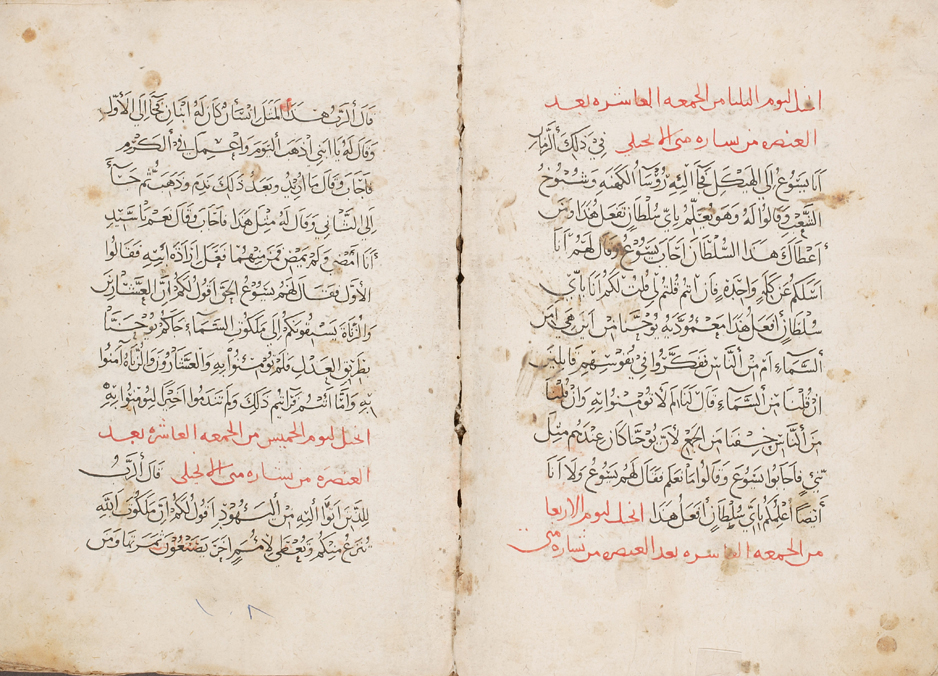 انجيل ليوم الثلثا من الجمعه العاشره بعد
العنصره من بشاره متى الانجيلي في ذلك الزمان
اتا يسوع الى الهيكل فجا اليه رؤسا الكهنه وشيوخ
الشعب وقالوا له وهو يعلم باي سلطان تفعل هذا ومن
اعطاك هذا السلطان اجاب يسوع وقال لهم انا
اسلكم عن كلمه واحده فان انتم قلتم لي قلت لكم انا باي
سلطان افعل هذا معموديه يوحنا من اين هي امن
السماء ام من الناس ففكروا في نفوسهم قايلين
ان قلنا من السماء قال لنا لم لا تومنوا به وان قلنا
من الناس خفنا من الجمع لان يوحنا كان عندهم مثل
نبي فاجابوا يسوع وقالوا ما نعلم فقال لهم يسوع ولا انا
أيضا أعلمكم باي سلطان أفعل هذا انجيل ليوم الاربعا
من الجمعه العاشره بعد العنصره من بشاره متى
قال الرب هذا المثل انسان كان له ابنان فجا الى الأول
وقال له يا ابني اذهب اليوم واعمل في الكرم
فاجاب وقال ما اريد وبعد ذلك ندم وذهب ثم جاأ
الى الثاني وقال له مثل هذا فاجاب وقال نعم يا سيد
أنا امضي ولم يمض فمن منهما فعل ارادة ابيه فقالوا
الاول فقال لهم يسوع الحق اقول لكم ان العشارين
والزناة يسبقونكم الى ملكوت السماء جاكم يوحنا
بطريق العدل فلم تومنوا به والعشارون والزناه آمنوا
به واما انتم فرايتم ذلك ولم تندموا اخيرا لتومنوا به
انجيل ليوم الخميس من الجمعه العاشره بعد
العنصره من بشاره متى الانجيلي قال الرب
للذين اتوا اليه من اليهود اقول لكم ان ملكوت الله
تنزع منكم وتعطى لامم اخر يصنعون ثمرتها ومن
١٠٨